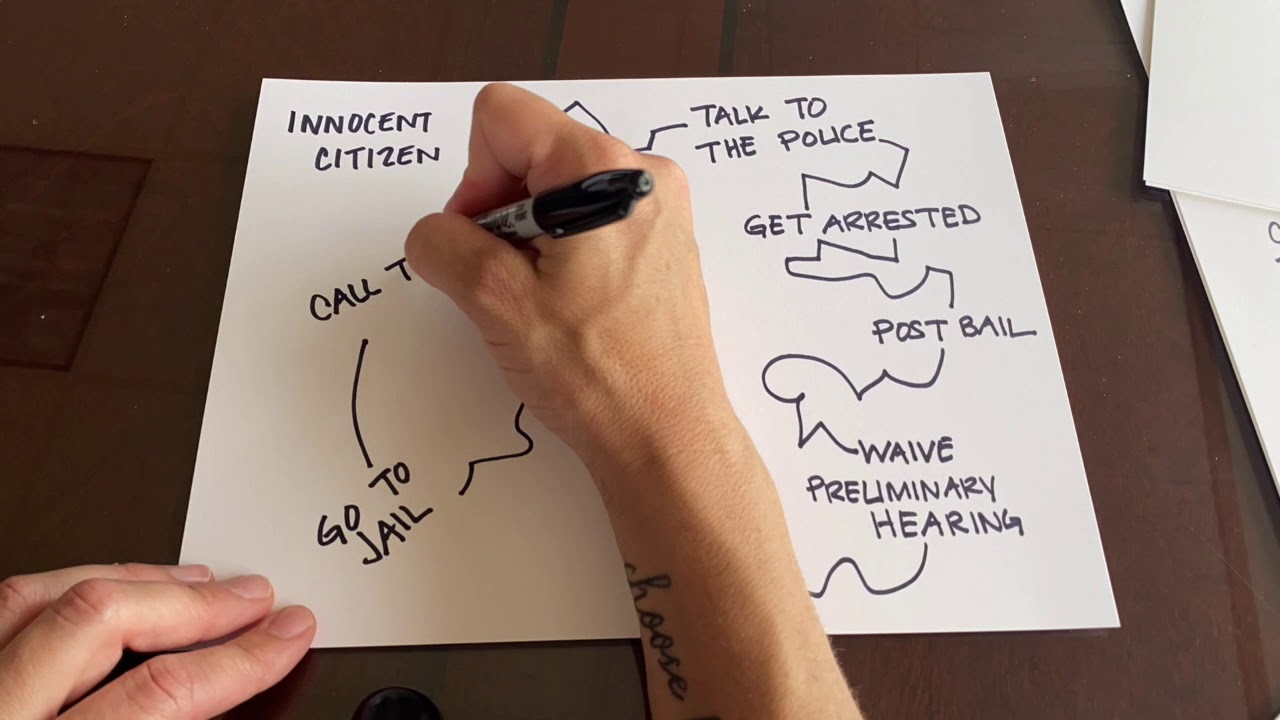 INNOCENT
CITIZEN
TALK TO
THE POLICE
GET ARRESTED
POST BAIL
WAIVE
PRELIMINARY
HEARING
CALL T
GO TO
JAIL
choose